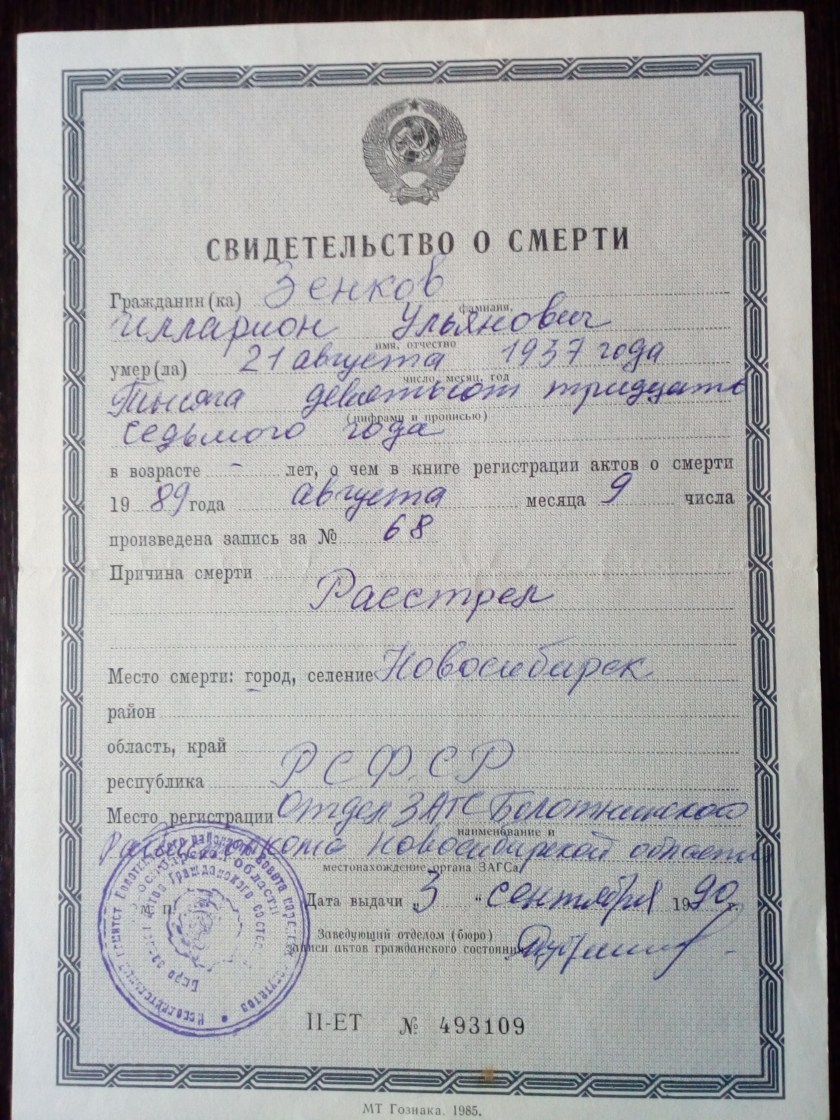 СВИДЕТЕЛЬСТВО О СМЕРТИ
Гражданин(ка) Зенков
фамилия,
Илларион Ульянович
имя, отчество
умер(ла) 21 августа 1937 года
число, месяц, год
Тысяча девятьсот тридцать
(цифрами и прописью)
седьмого года
в возрасте – лет, о чем в книге регистрации актов о смерти
19 89 года августа месяца 9 числа
произведена запись за № 68
Причина смерти
Расстрел
Место смерти: город, селение Новосибирск
район
область, край
республика РСФСР
Место регистрации Отдел ЗАГС Болотнинского
наименование и
Райисполкома Новосибирской области
местонахождение органа ЗАГСа
М. П.
Дата выдачи „3 “ сентября 1990 г.
Заведующий отделом (бюро)
записи актов гражданского состояния
II-ЕТ № 493109
МТ Гознака. 1985.